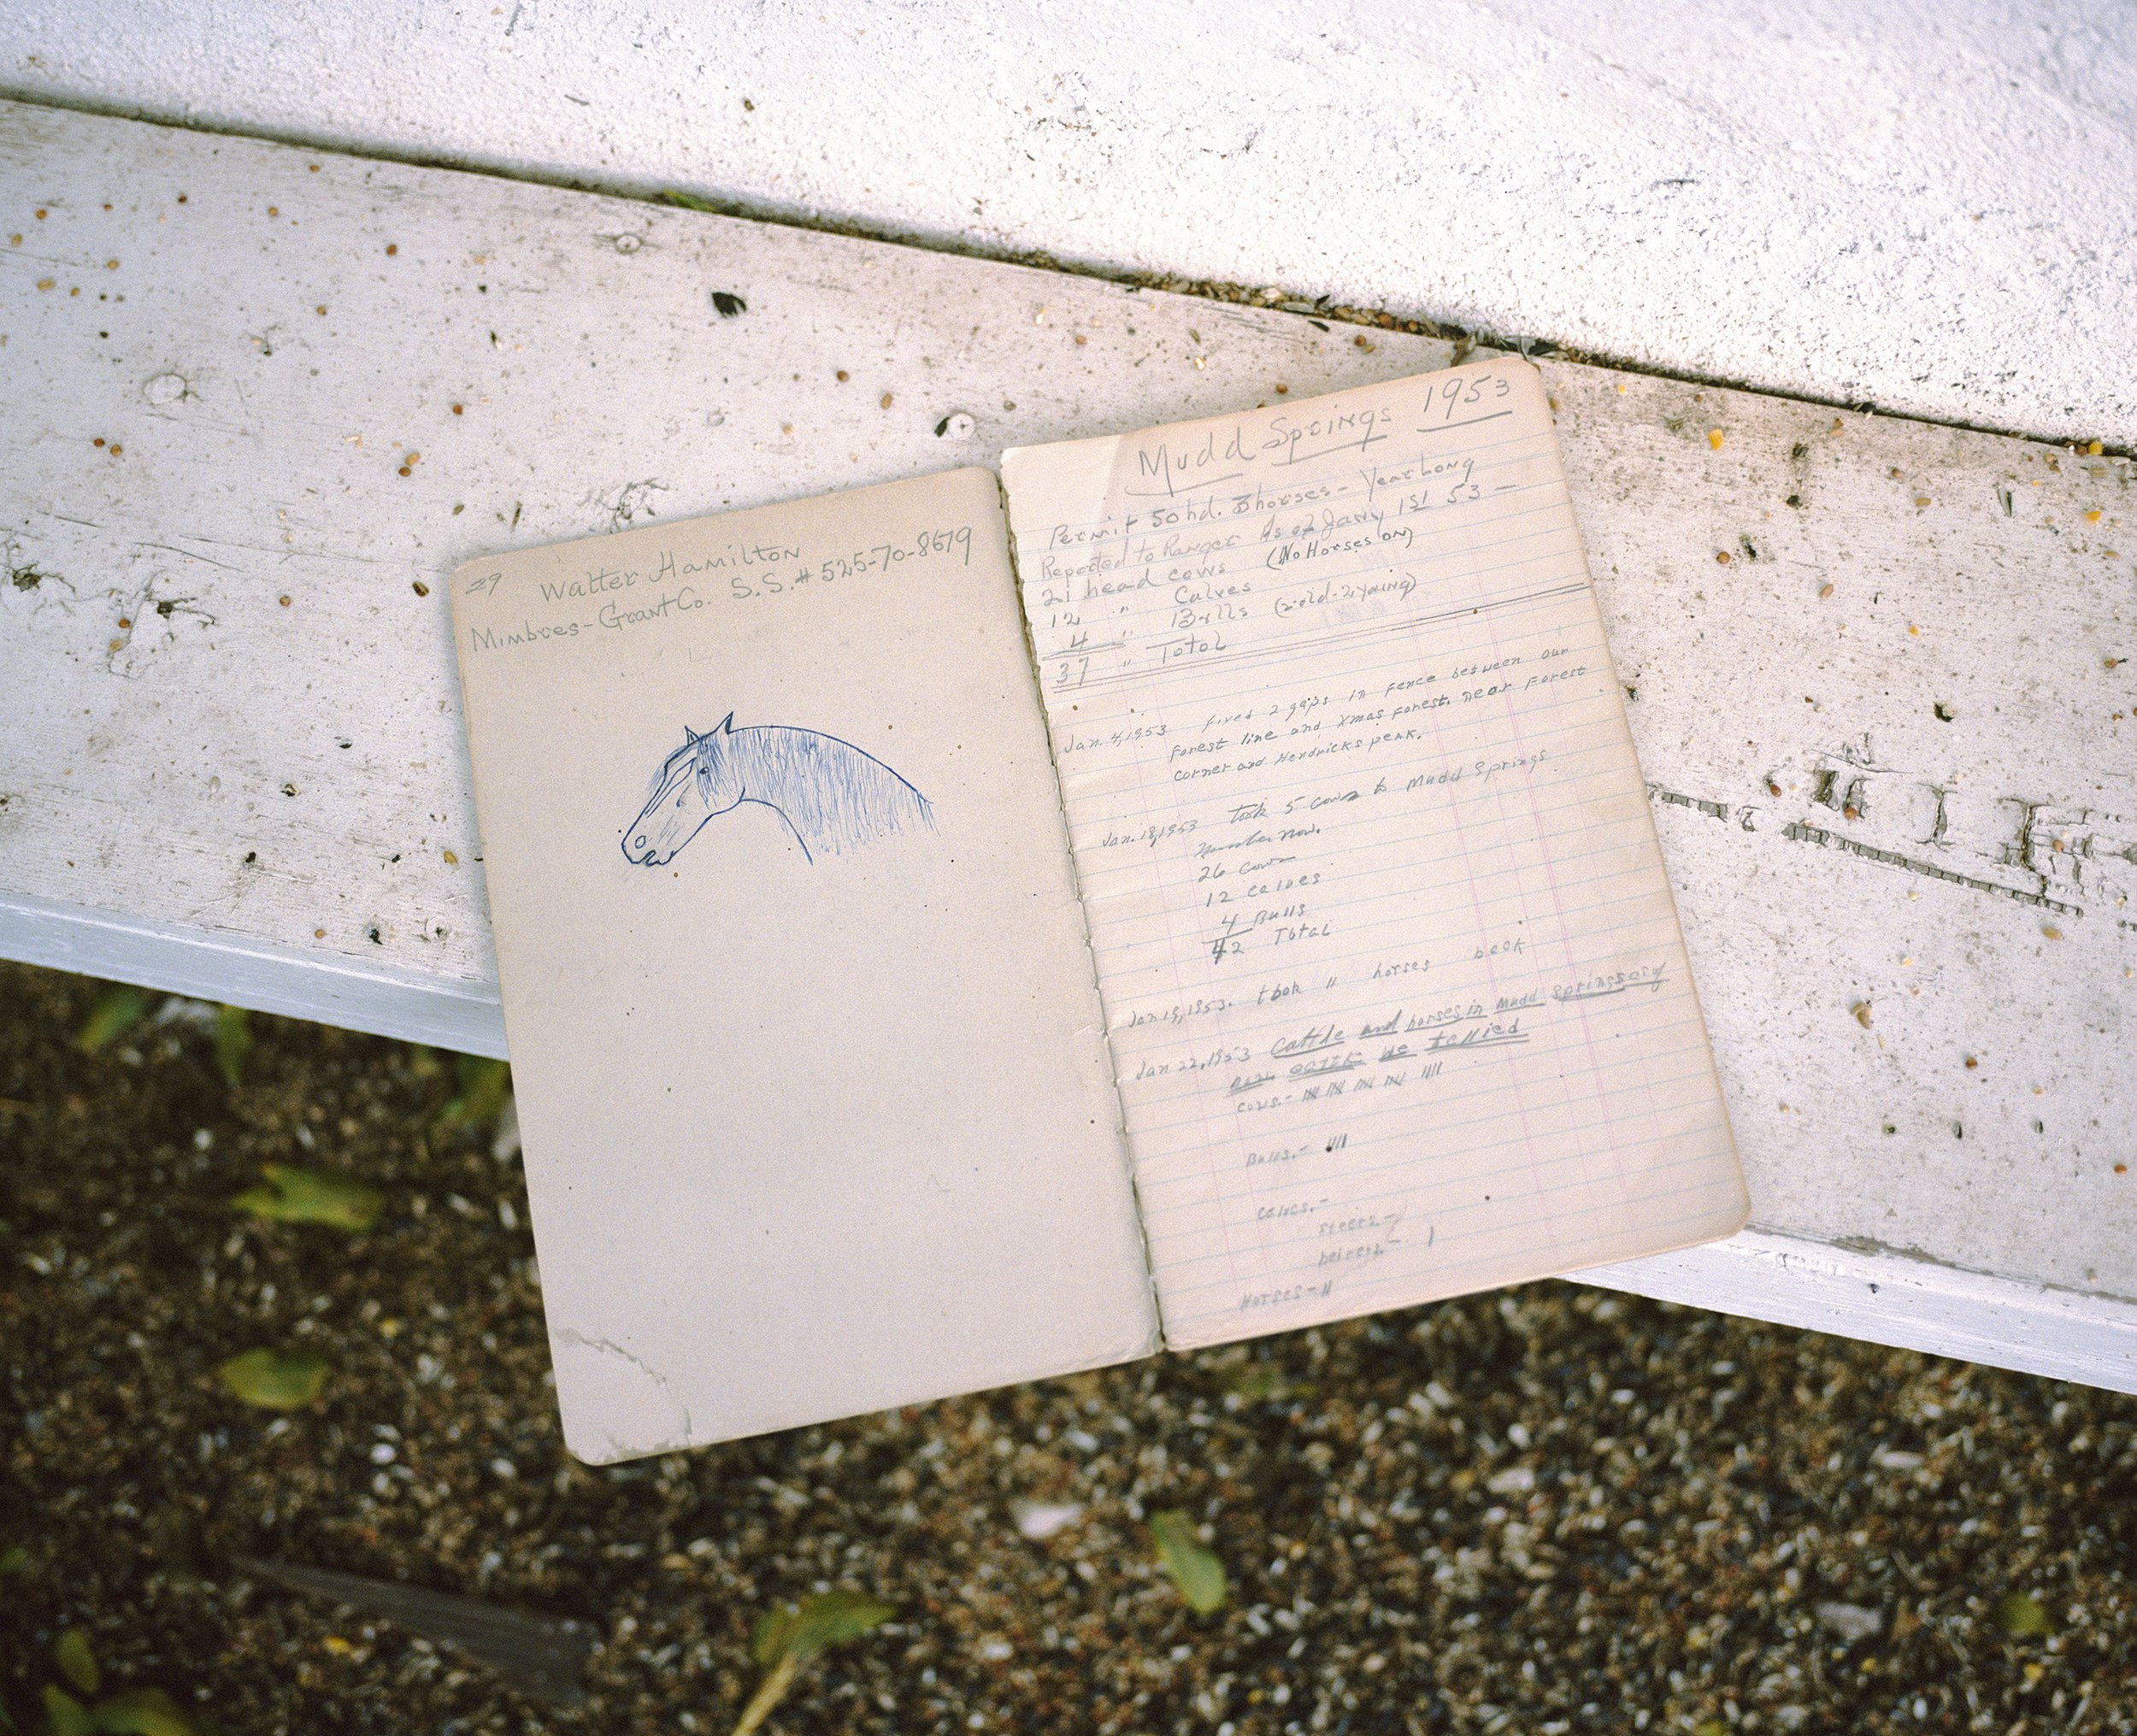 29 Walter Hamilton
Mimbres - Grant Co. S.S. # 525-70-8679
Mudd Springs 1953
Permit 50 hd. 3 horses - Year Long
Reported to Ranger As of Jany 1st 53 -
21 head cows (No Horses on)
12 " Calves
4 " Bulls (2 old - 2 young)
37 " Total
Jan. 4, 1953 fixed 2 gaps in fence between our
forest line and Xmas forest. near forest
corner and Hendricks peak.
Jan. 18, 1953 took 5 cows to Mudd Springs
Number now.
26 cows
12 calves
4 Bulls
42 Total
Jan 19, 1953. took 11 horses back
Jan 22, 1953 Cattle and horses in Mudd Springs as of
now we tallied
cows. -
Bulls. - 4111
calves. -
steers. -
heifers - 1
Horses - 11